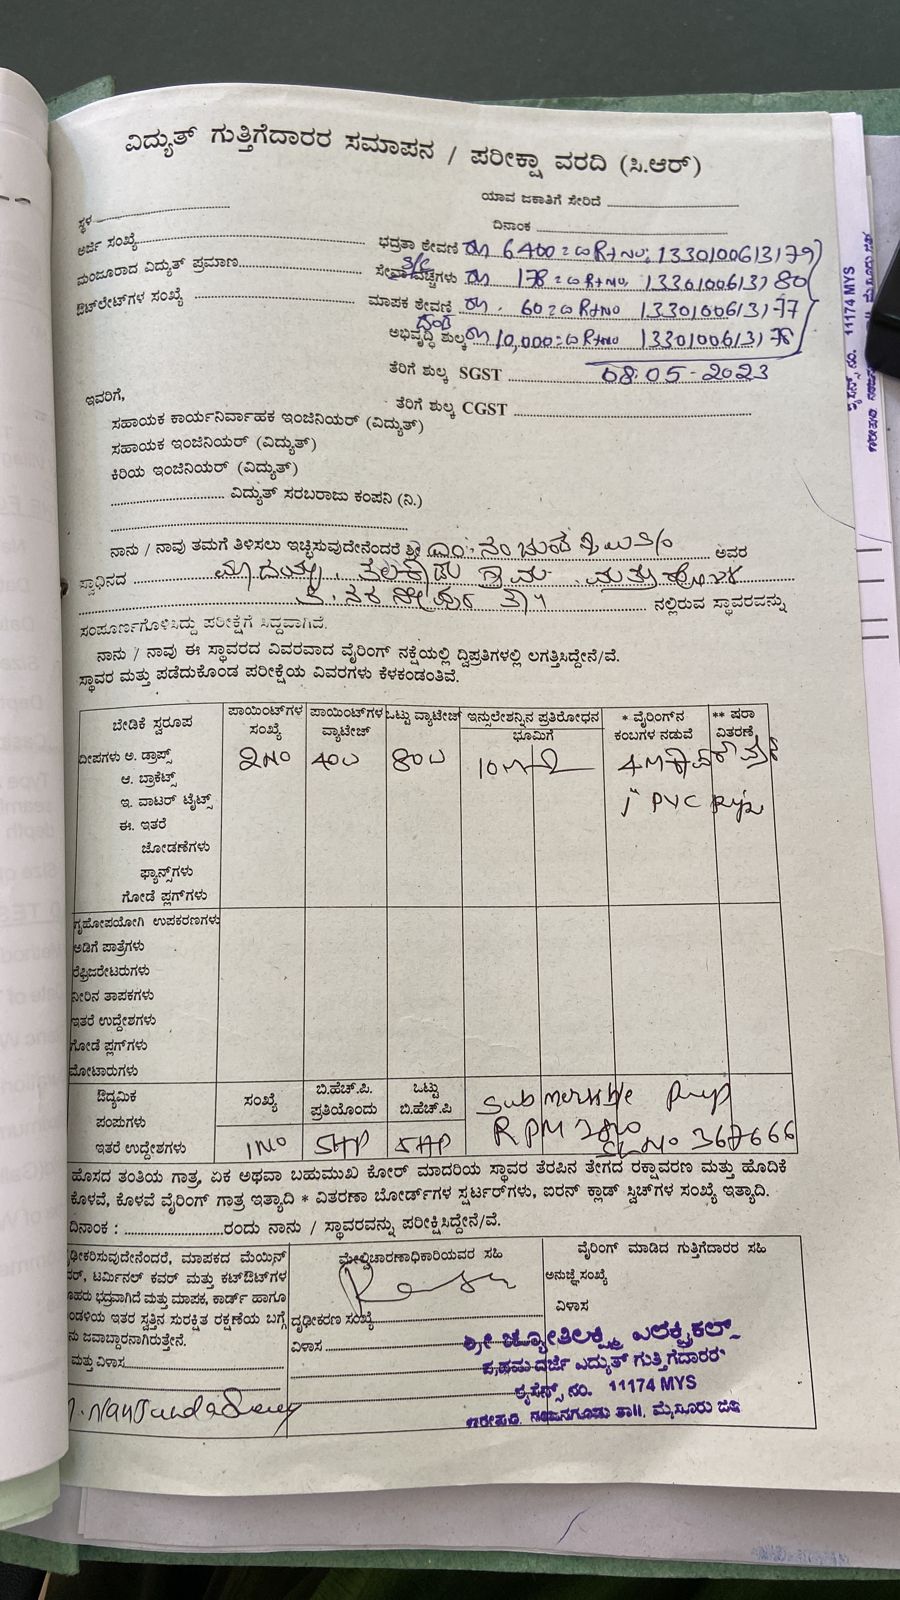 ವಿದ್ಯುತ್ ಗುತ್ತಿಗೆದಾರರ ಸಮಾಪನ / ಪರೀಕ್ಷಾ ವರದಿ (ಸಿ.ಆರ್)
ಯಾವ ಜಕಾತಿಗೆ ಸೇರಿದೆ
ಸ್ಥಳ
ದಿನಾಂಕ
ಅರ್ಜಿ ಸಂಖ್ಯೆ
ಭದ್ರತಾ ಠೇವಣಿ 6400=00 R+No: 1330100613179
ಮಂಜೂರಾದ ವಿದ್ಯುತ್ ಪ್ರಮಾಣ
S/C
ಸೇವಾ ವೆಚ್ಚಗಳು 178=00 R+No. 1330100613180
ಔಟ್‌ಲೇಟ್‌ಗಳ ಸಂಖ್ಯೆ
ಮಾಪಕ ಠೇವಣಿ 60=00 R+No 1330100613177
ಅಭಿವೃದ್ಧಿ ಶುಲ್ಕ 10,000=00 R+No 1330100613178
ತೆರಿಗೆ ಶುಲ್ಕ SGST 08.05-2023
ಇವರಿಗೆ,
ತೆರಿಗೆ ಶುಲ್ಕ CGST
ಸಹಾಯಕ ಕಾರ್ಯನಿರ್ವಾಹಕ ಇಂಜಿನಿಯರ್ (ವಿದ್ಯುತ್)
ಸಹಾಯಕ ಇಂಜಿನಿಯರ್ (ವಿದ್ಯುತ್)
ಕಿರಿಯ ಇಂಜಿನಿಯರ್ (ವಿದ್ಯುತ್)
ವಿದ್ಯುತ್ ಸರಬರಾಜು ಕಂಪನಿ (ನಿ.)
ನಾನು / ನಾವು ತಮಗೆ ತಿಳಿಸಲು ಇಚ್ಛಿಸುವುದೇನೆಂದರೆ ಶ್ರೀ ಅವರ
ಸ್ವಾಧಿನದ ಮಾದಯ್ಯ, ತಲಕಾಡು ಗ್ರಾಮ
ತಿ. ನರಸೀಪುರ ತಾ|| ನಲ್ಲಿರುವ ಸ್ಥಾವರವನ್ನು
ಸಂಪೂರ್ಣಗೊಳಿಸಿದ್ದು ಪರೀಕ್ಷೆಗೆ ಸಿದ್ಧವಾಗಿದೆ.
ನಾನು / ನಾವು ಈ ಸ್ಥಾವರದ ವಿವರವಾದ ವೈರಿಂಗ್ ನಕ್ಷೆಯಲ್ಲಿ ದ್ವಿಪ್ರತಿಗಳಲ್ಲಿ ಲಗತ್ತಿಸಿದ್ದೇನೆ/ವೆ.
ಸ್ಥಾವರ ಮತ್ತು ಪಡೆದುಕೊಂಡ ಪರೀಕ್ಷೆಯ ವಿವರಗಳು ಕೆಳಕಂಡಂತಿವೆ.
ಬೇಡಿಕೆ ಸ್ವರೂಪ ಪಾಯಿಂಟ್‌ಗಳ ಸಂಖ್ಯೆ ಪಾಯಿಂಟ್‌ಗಳ ವ್ಯಾಟೇಜ್ ಒಟ್ಟು ವ್ಯಾಟೇಜ್ ಇನ್ಸುಲೇಶನ್ನಿನ ಪ್ರತಿರೋಧನ ಭೂಮಿಗೆ * ವೈರಿಂಗ್‌ನ ಕಂಬಗಳ ನಡುವೆ ** ಷರಾ ವಿತರಣೆ
ದೀಪಗಳು ಅ. ಡ್ರಾಪ್ಸ್ 2No 40W 80W 10MΩ
ಆ. ಬ್ರಾಕೆಟ್ಸ್
ಇ. ವಾಟರ್ ಟೈಟ್ಸ್ 1" PVC
ಈ. ಇತರೆ
ಜೋಡಣೆಗಳು
ಫ್ಯಾನ್ಸ್‌ಗಳು
ಗೋಡೆ ಪ್ಲಗ್‌ಗಳು
ಗೃಹೋಪಯೋಗಿ ಉಪಕರಣಗಳು
ಅಡಿಗೆ ಪಾತ್ರೆಗಳು
ರೆಫ್ರಿಜರೇಟರುಗಳು
ನೀರಿನ ತಾಪಕಗಳು
ಇತರೆ ಉದ್ದೇಶಗಳು
ಗೋಡೆ ಪ್ಲಗ್‌ಗಳು
ಮೋಟಾರುಗಳು
ಔದ್ಯಮಿಕ ಸಂಖ್ಯೆ ಬಿ.ಹೆಚ್.ಪಿ. ಪ್ರತಿಯೊಂದು ಒಟ್ಟು ಬಿ.ಹೆಚ್.ಪಿ Submersible Pump
ಪಂಪುಗಳು
ಇತರೆ ಉದ್ದೇಶಗಳು 1No 5HP 5HP RPM SLNo 367666
ಹೊಸದ ತಂತಿಯ ಗಾತ್ರ, ಏಕ ಅಥವಾ ಬಹುಮುಖ ಕೋರ್ ಮಾದರಿಯ ಸ್ಥಾವರ ತೆರಪಿನ ತೇಗದ ರಕ್ಷಾವರಣ ಮತ್ತು ಹೊದಿಕೆ
ಕೊಳವೆ, ಕೊಳವೆ ವೈರಿಂಗ್ ಗಾತ್ರ ಇತ್ಯಾದಿ * ವಿತರಣಾ ಬೋರ್ಡ್‌ಗಳ ಸ್ಟರ್ಟರ್‌ಗಳು, ಐರನ್ ಕ್ಲಾಡ್ ಸ್ವಿಚ್‌ಗಳ ಸಂಖ್ಯೆ ಇತ್ಯಾದಿ.
ದಿನಾಂಕ : ರಂದು ನಾನು / ಸ್ಥಾವರವನ್ನು ಪರೀಕ್ಷಿಸಿದ್ದೇನೆ/ವೆ.
ಢೀಕರಿಸುವುದೇನೆಂದರೆ, ಮಾಪಕದ ಮೆಯಿನ್
ಟರ್ಮಿನಲ್ ಕವರ್ ಮತ್ತು ಕಟ್‌ಔಟ್‌ಗಳ
ಭದ್ರವಾಗಿದೆ ಮತ್ತು ಮಾಪಕ, ಕಾರ್ಡ್ ಹಾಗೂ
ಂಡಳಿಯ ಇತರ ಸ್ವತ್ತಿನ ಸುರಕ್ಷಿತ ರಕ್ಷಣೆಯ ಬಗ್ಗೆ
ಜವಾಬ್ದಾರನಾಗಿರುತ್ತೇನೆ.
ಮತ್ತು ವಿಳಾಸ
ಮೇಲ್ವಿಚಾರಣಾಧಿಕಾರಿಯವರ ಸಹಿ
ದೃಢೀಕರಣ ಸಂಖ್ಯೆ
ವಿಳಾಸ
ವೈರಿಂಗ್ ಮಾಡಿದ ಗುತ್ತಿಗೆದಾರರ ಸಹಿ
ಅನುಜ್ಞೆ ಸಂಖ್ಯೆ
ವಿಳಾಸ
ಶ್ರೀ ಜ್ಯೋತಿಲಕ್ಷ್ಮಿ ಎಲೆಕ್ಟ್ರಿಕಲ್ಸ್
ಪ್ರಥಮ ದರ್ಜೆ ವಿದ್ಯುತ್ ಗುತ್ತಿಗೆದಾರರು
ಲೈಸೆನ್ಸ್ ನಂ. 11174 MYS
ನಂಜನಗೂಡು ತಾ||. ಮೈಸೂರು ಜಿಲ್ಲೆ
ಲೈಸೆನ್ಸ್ ನಂ. 11174 MYS